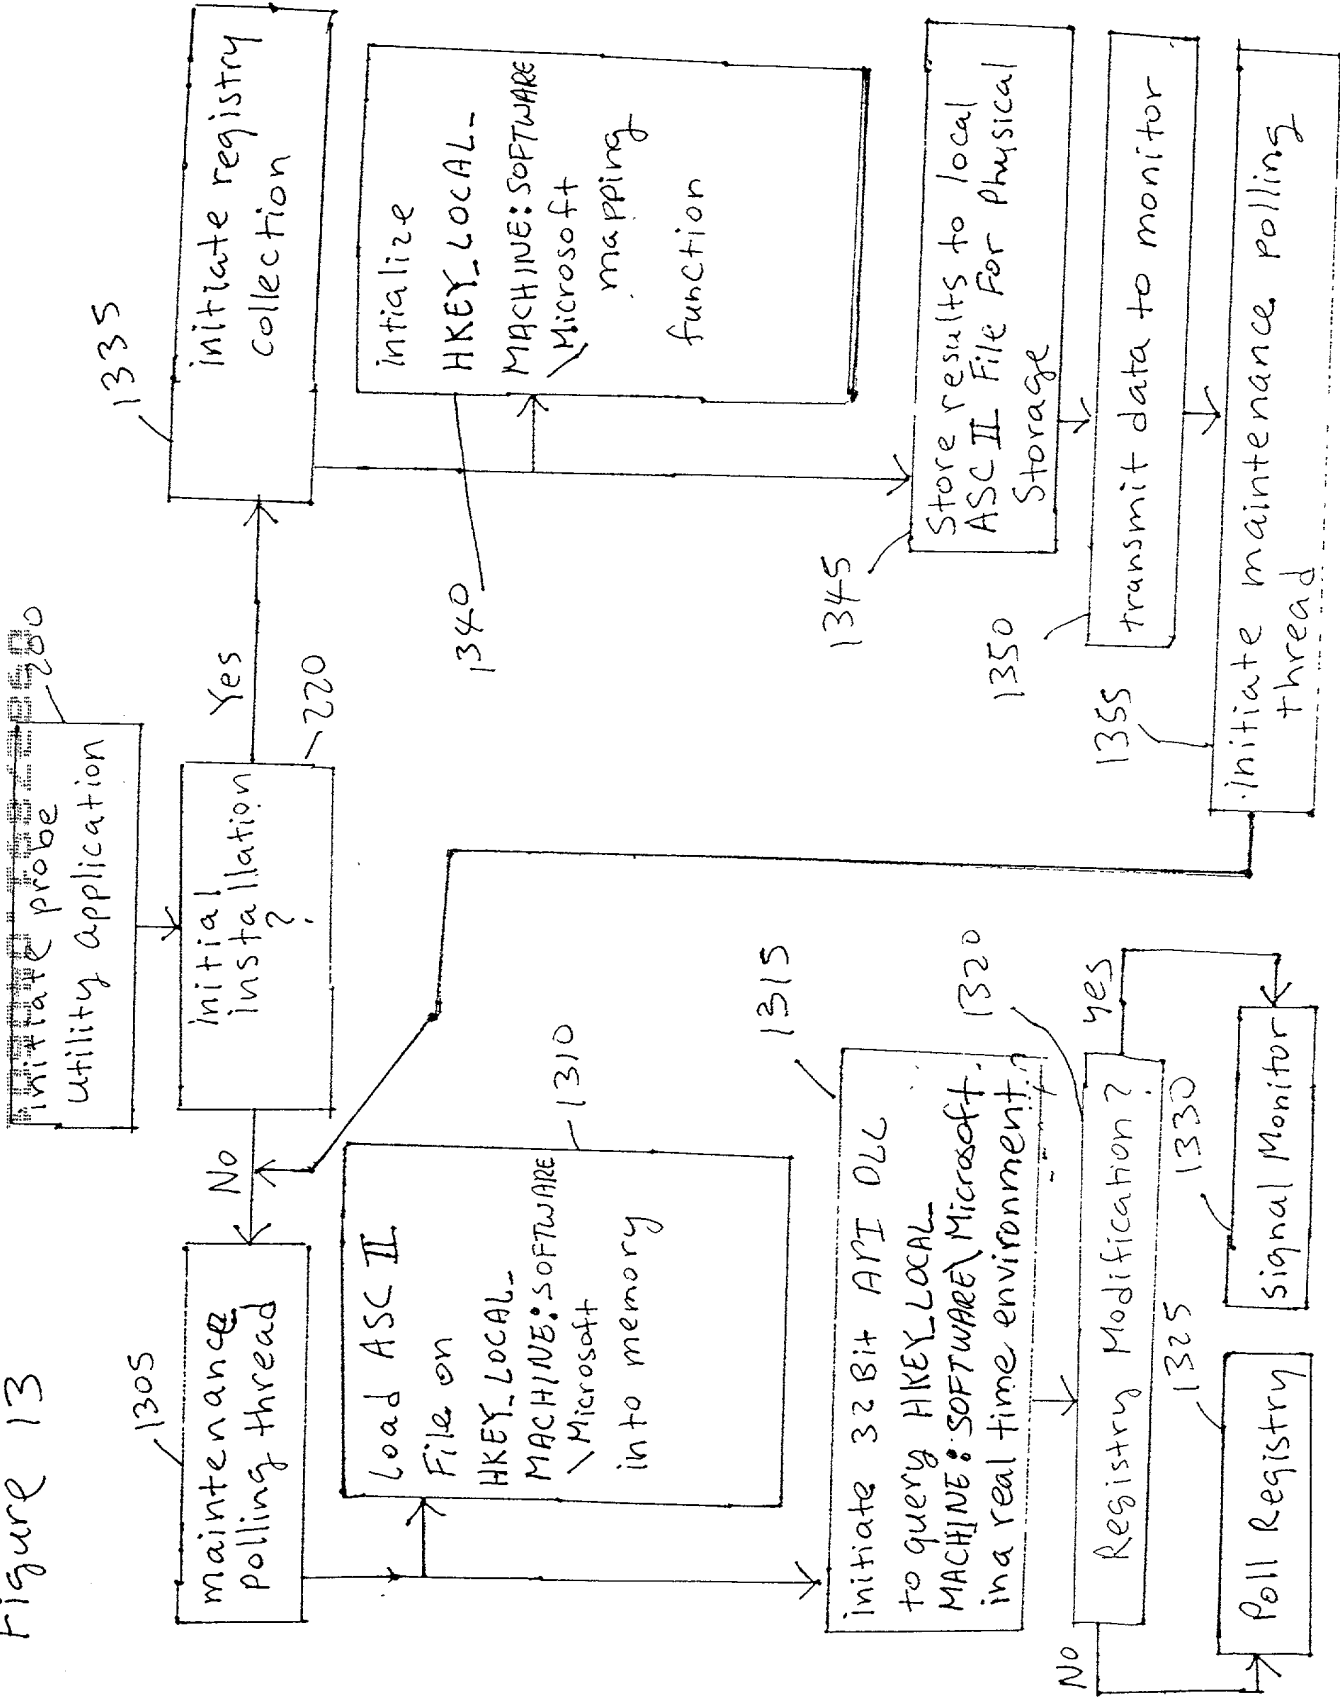 Figure 13
initiate probe
utility application
200
initial
installation
?
220
Yes
No
1305
maintenance
polling thread
Load ASC II
File on
HKEY_LOCAL_
MACHINE:SOFTWARE
\Microsoft
into memory
1310
1315
initiate 32 Bit API DLL
to query HKEY_LOCAL_
MACHINE:SOFTWARE\Microsoft
in a real time environment.
1320
Registry Modification?
No
yes
1325
Poll Registry
1330
Signal Monitor
1335
initiate registry
collection
intialize
HKEY_LOCAL_
MACHINE:SOFTWARE
\Microsoft
mapping
function
1340
1345
Store results to local
ASC II File For Physical
Storage
1350
transmit data to monitor
1355
initiate maintenance polling
thread